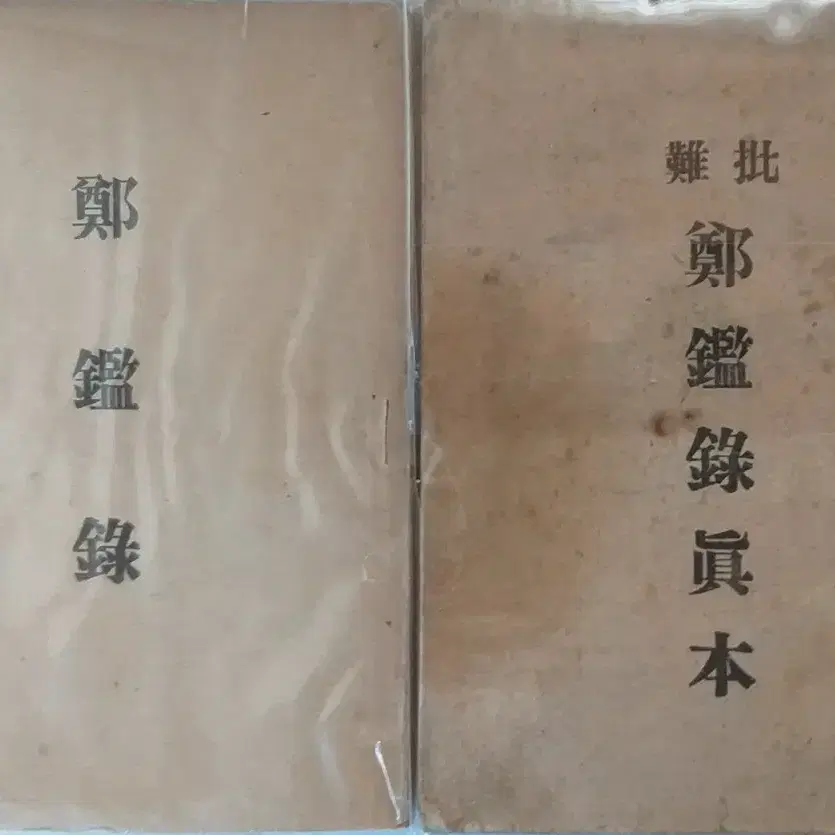 鄭鑑錄
批難
鄭鑑錄眞本